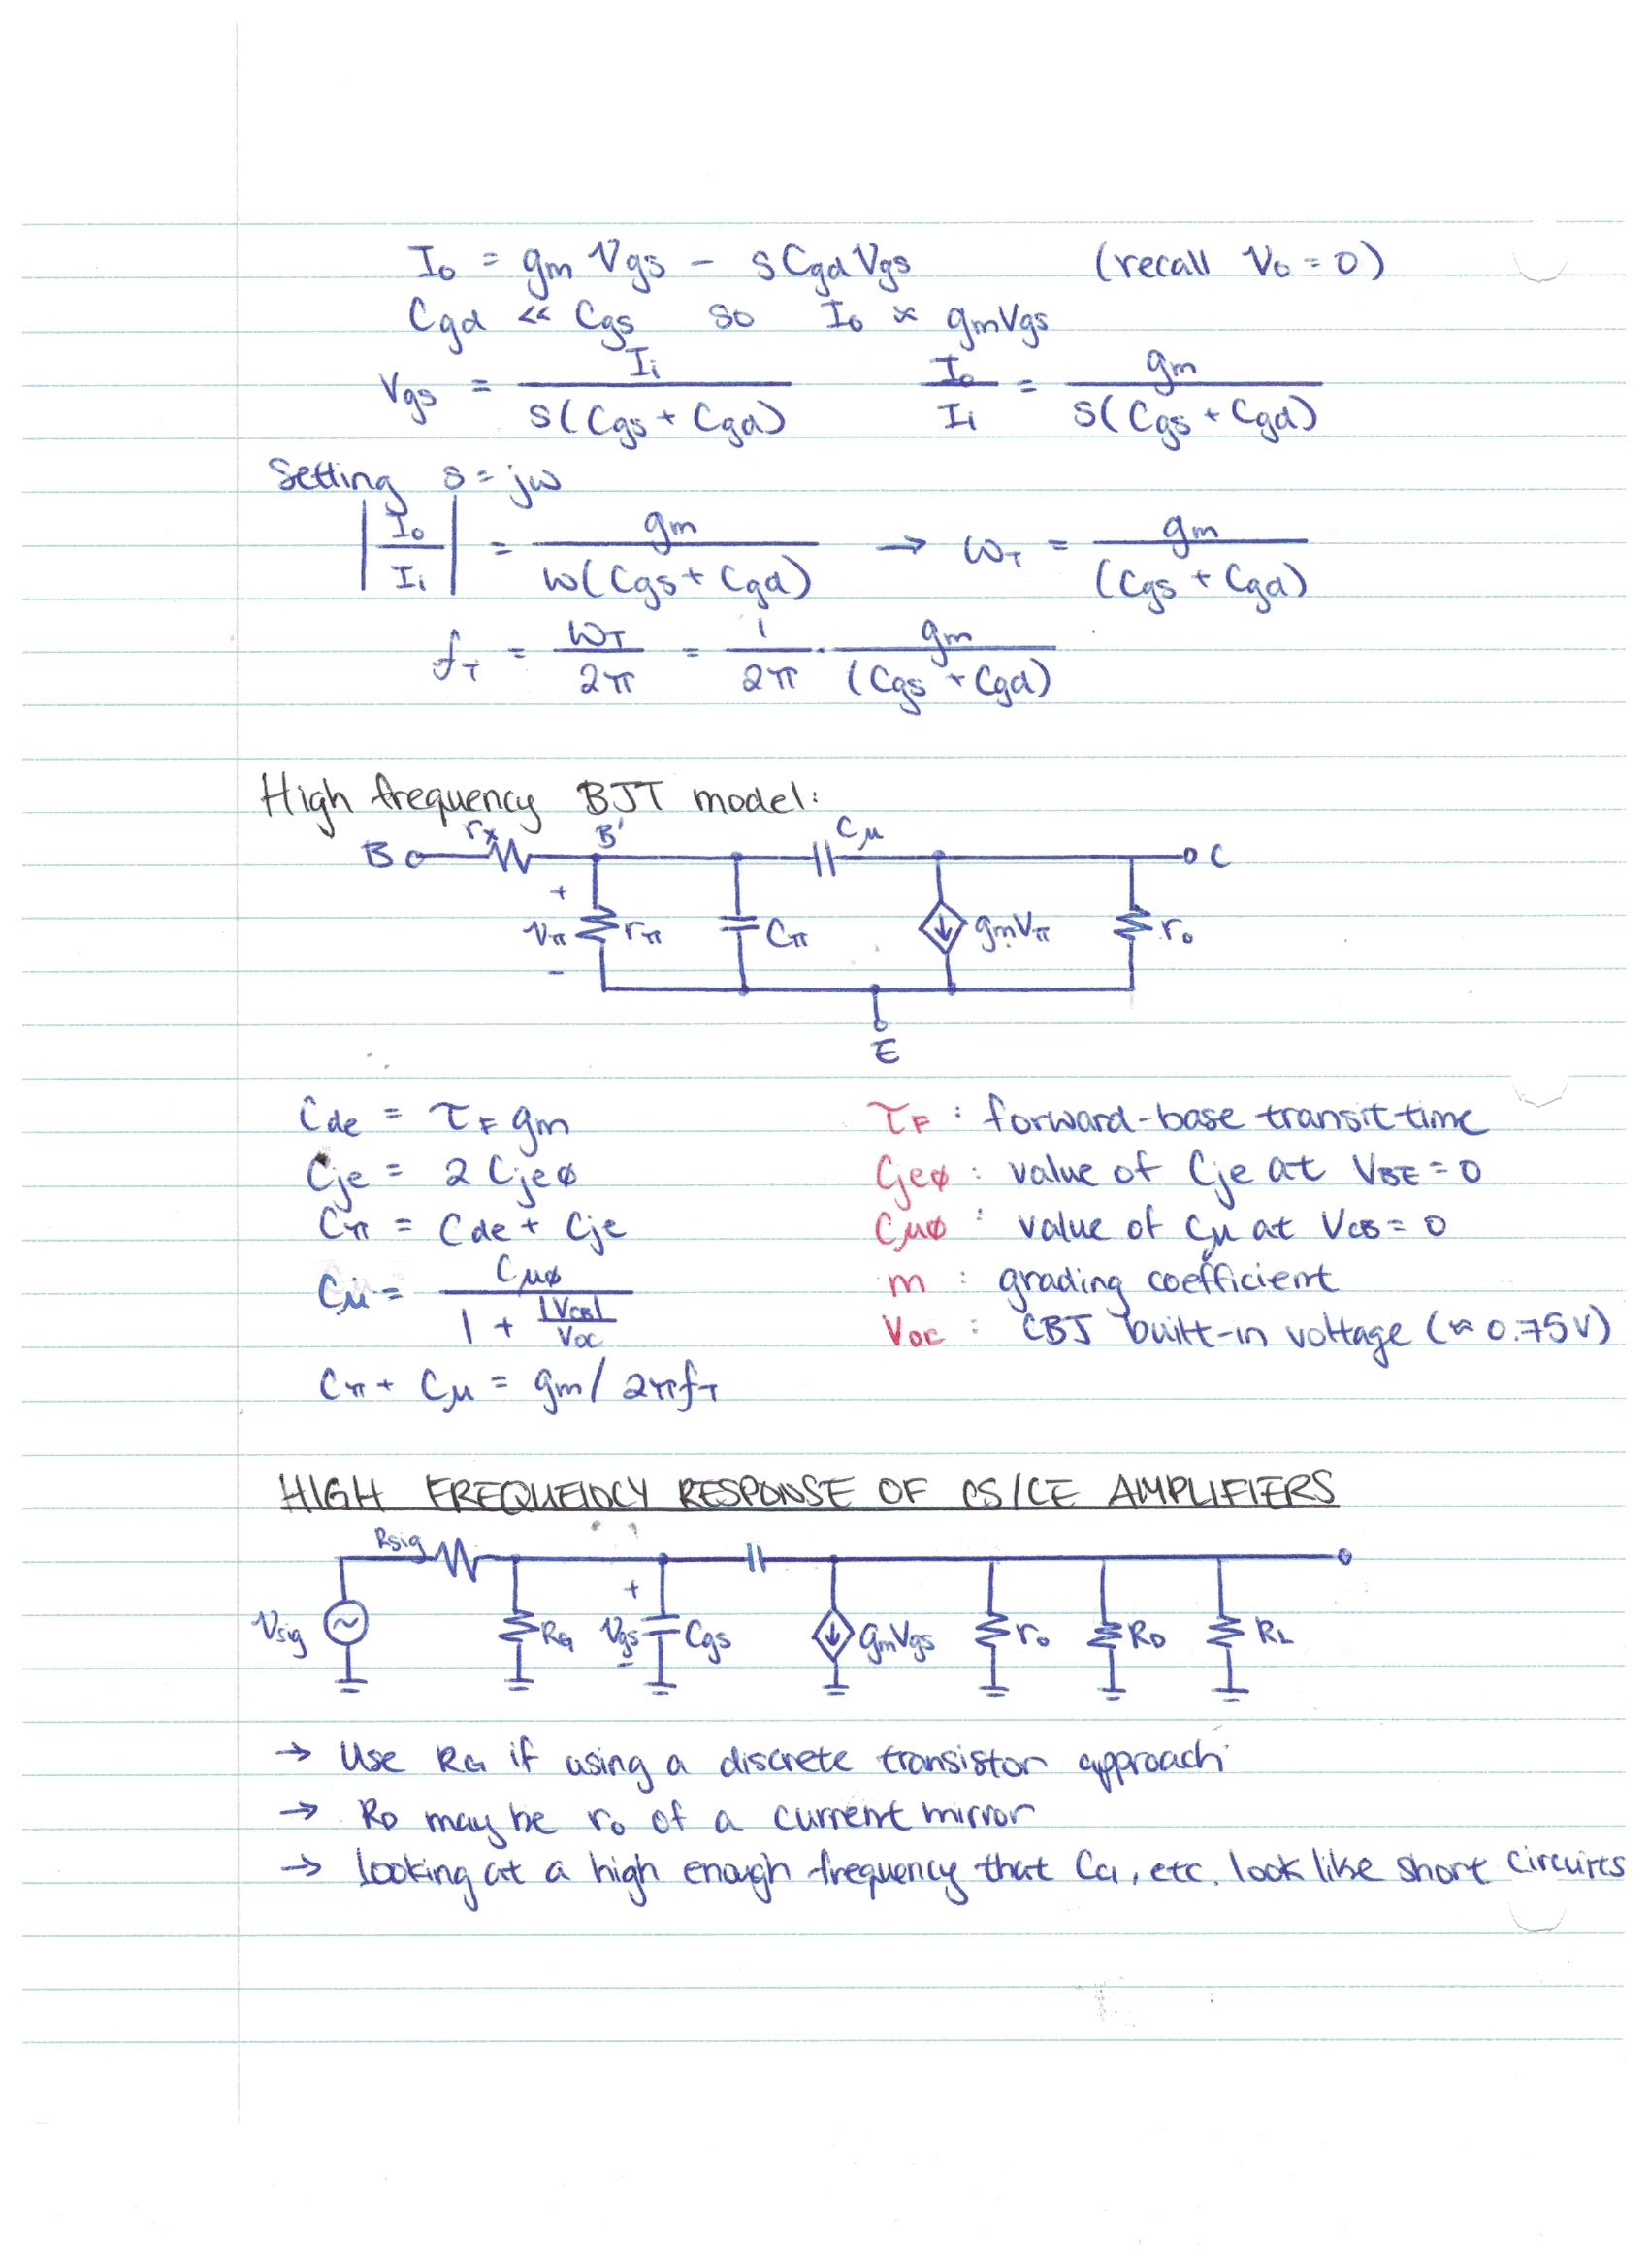 I₀ = gm Vgs - sCgdVgs (recall V₀ = 0)
Cgd << Cgs so I₀ ≈ gmVgs
Vgs = Ii / s(Cgs + Cgd) I₀ / Ii = gm / s(Cgs + Cgd)
Setting s = jω
|I₀ / Ii| = gm / ω(Cgs + Cgd) → ωT = gm / (Cgs + Cgd)
fT = ωT / 2π = 1 / 2π · gm / (Cgs + Cgd)
High frequency BJT model:
B rx B' Cμ C
+ Vπ - rπ Cπ gmVπ r₀
E
Cde = τF gm τF : forward-base transit time
Cje = 2 Cjeø Cjeø : value of Cje at VBE = 0
Cπ = Cde + Cje Cμø : value of Cμ at VCB = 0
Cμ = Cμø / 1 + |VCB| / VOC m : grading coefficient
VOC : CBJ built-in voltage (≈ 0.75V)
Cπ + Cμ = gm / 2πfT
HIGH FREQUENCY RESPONSE OF CS/CE AMPLIFIERS
Rsig
Vsig RG + Vgs - Cgs gmVgs r₀ RD RL
→ Use RG if using a discrete transistor approach
→ RD may be r₀ of a current mirror
→ looking at a high enough frequency that CG, etc. look like short circuits